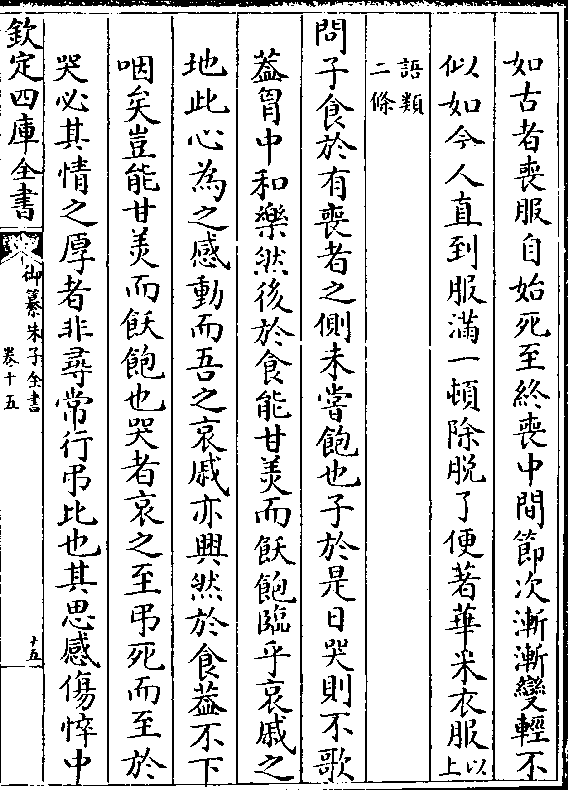 如古者喪服自始死至終喪中間節次漸漸變輕不
似如今人直到服滿一頓除脫了便著華采衣服以上
語類二條
問子食於有喪者之側未嘗飽也子於是日哭則不歌
葢胷中和樂然後於食能甘美而飫飽臨乎哀戚之
地此心為之感動而吾之哀戚亦興然於食葢不下
咽矣豈能甘美而飫飽也哭者哀之至弔死而至於
哭必其情之厚者非尋常行弔比也其思感傷悴中
欽定四庫全書
御纂朱子全書
卷十五
十五